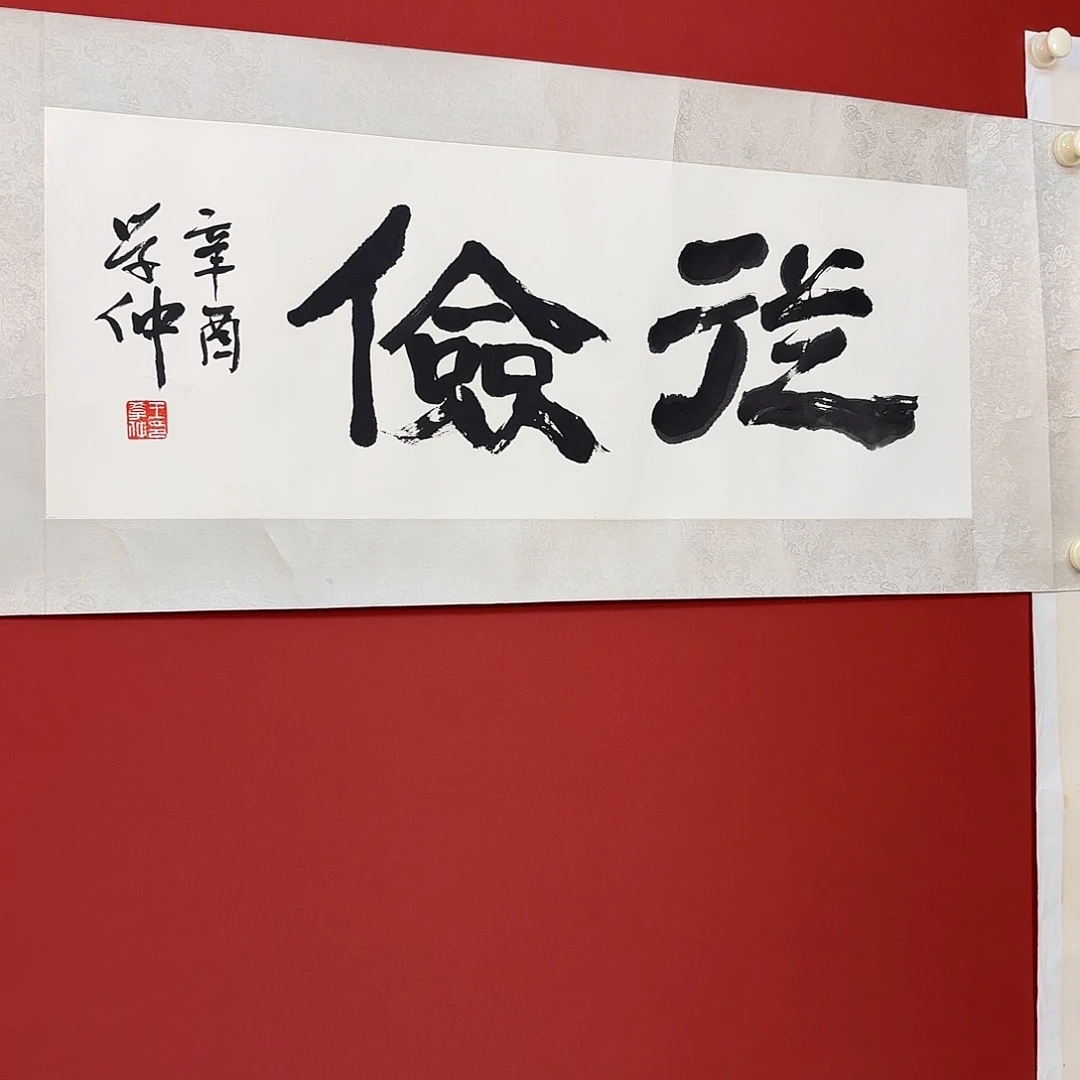 從儉
辛酉
学仲
王学仲印